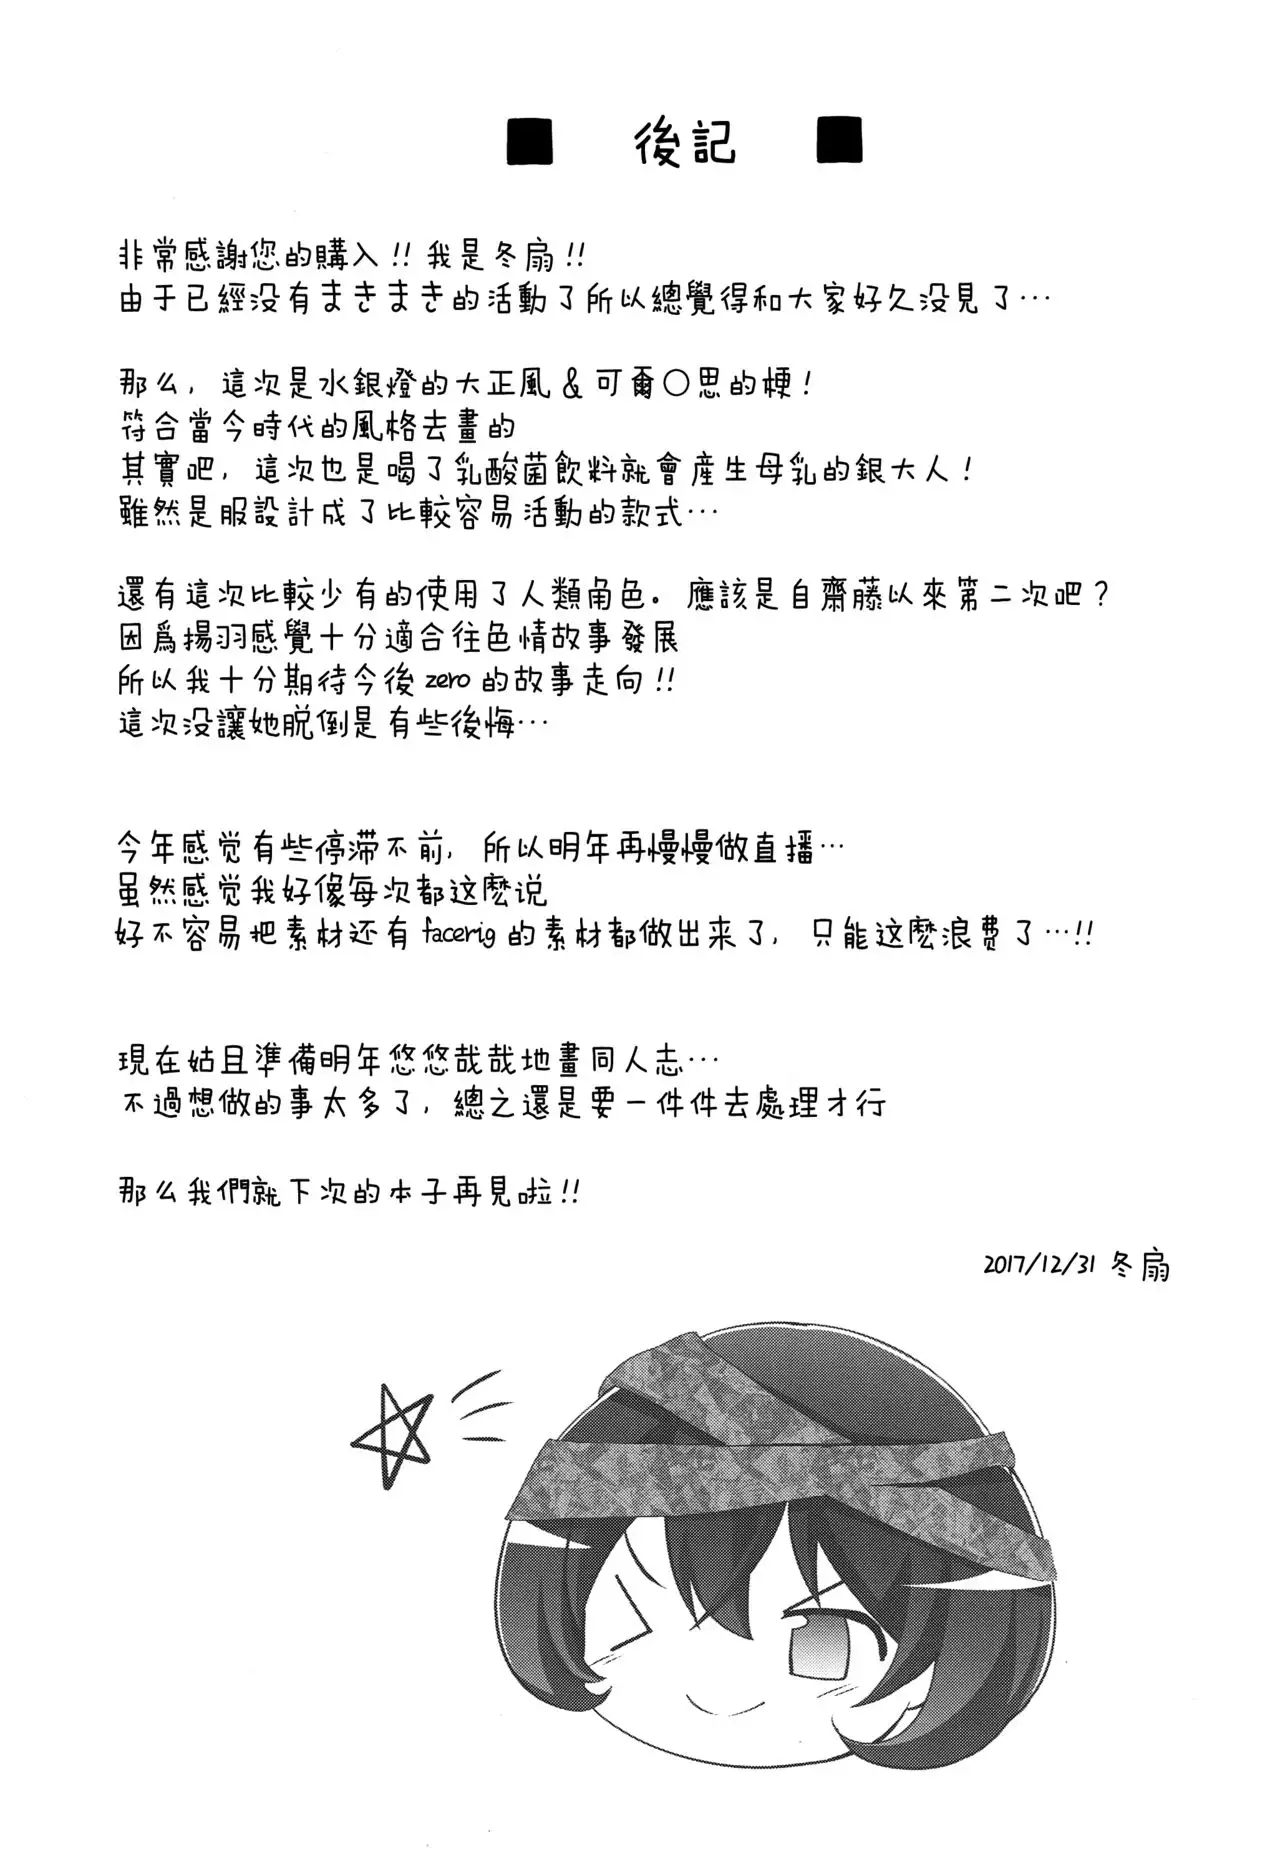 ■ 後記 ■
非常感謝您的購入!!我是冬扇!!
由于已經没有まきまき的活動了所以總覺得和大家好久没見了…
那么，這次是水銀燈的大正風&可爾○思的梗!
符合當今時代的風格去畫的
其實吧，這次也是喝了乳酸菌飲料就會産生母乳的銀大人!
雖然是服設計成了比較容易活動的款式…
還有這次比較少有的使用了人類角色。應該是自齋藤以來第二次吧?
因爲揚羽感覺十分適合往色情故事發展
所以我十分期待今後zero的故事走向!!
這次没讓她脱倒是有些後悔…
今年感觉有些停滞不前，所以明年再慢慢做直播…
虽然感觉我好像每次都这麽说
好不容易把素材还有facerig的素材都做出来了，只能这麽浪费了…!!
現在姑且準備明年悠悠哉哉地畫同人志…
不過想做的事太多了，總之還是要一件件去處理才行
那么我們就下次的本子再見啦!!
2017/12/31 冬扇